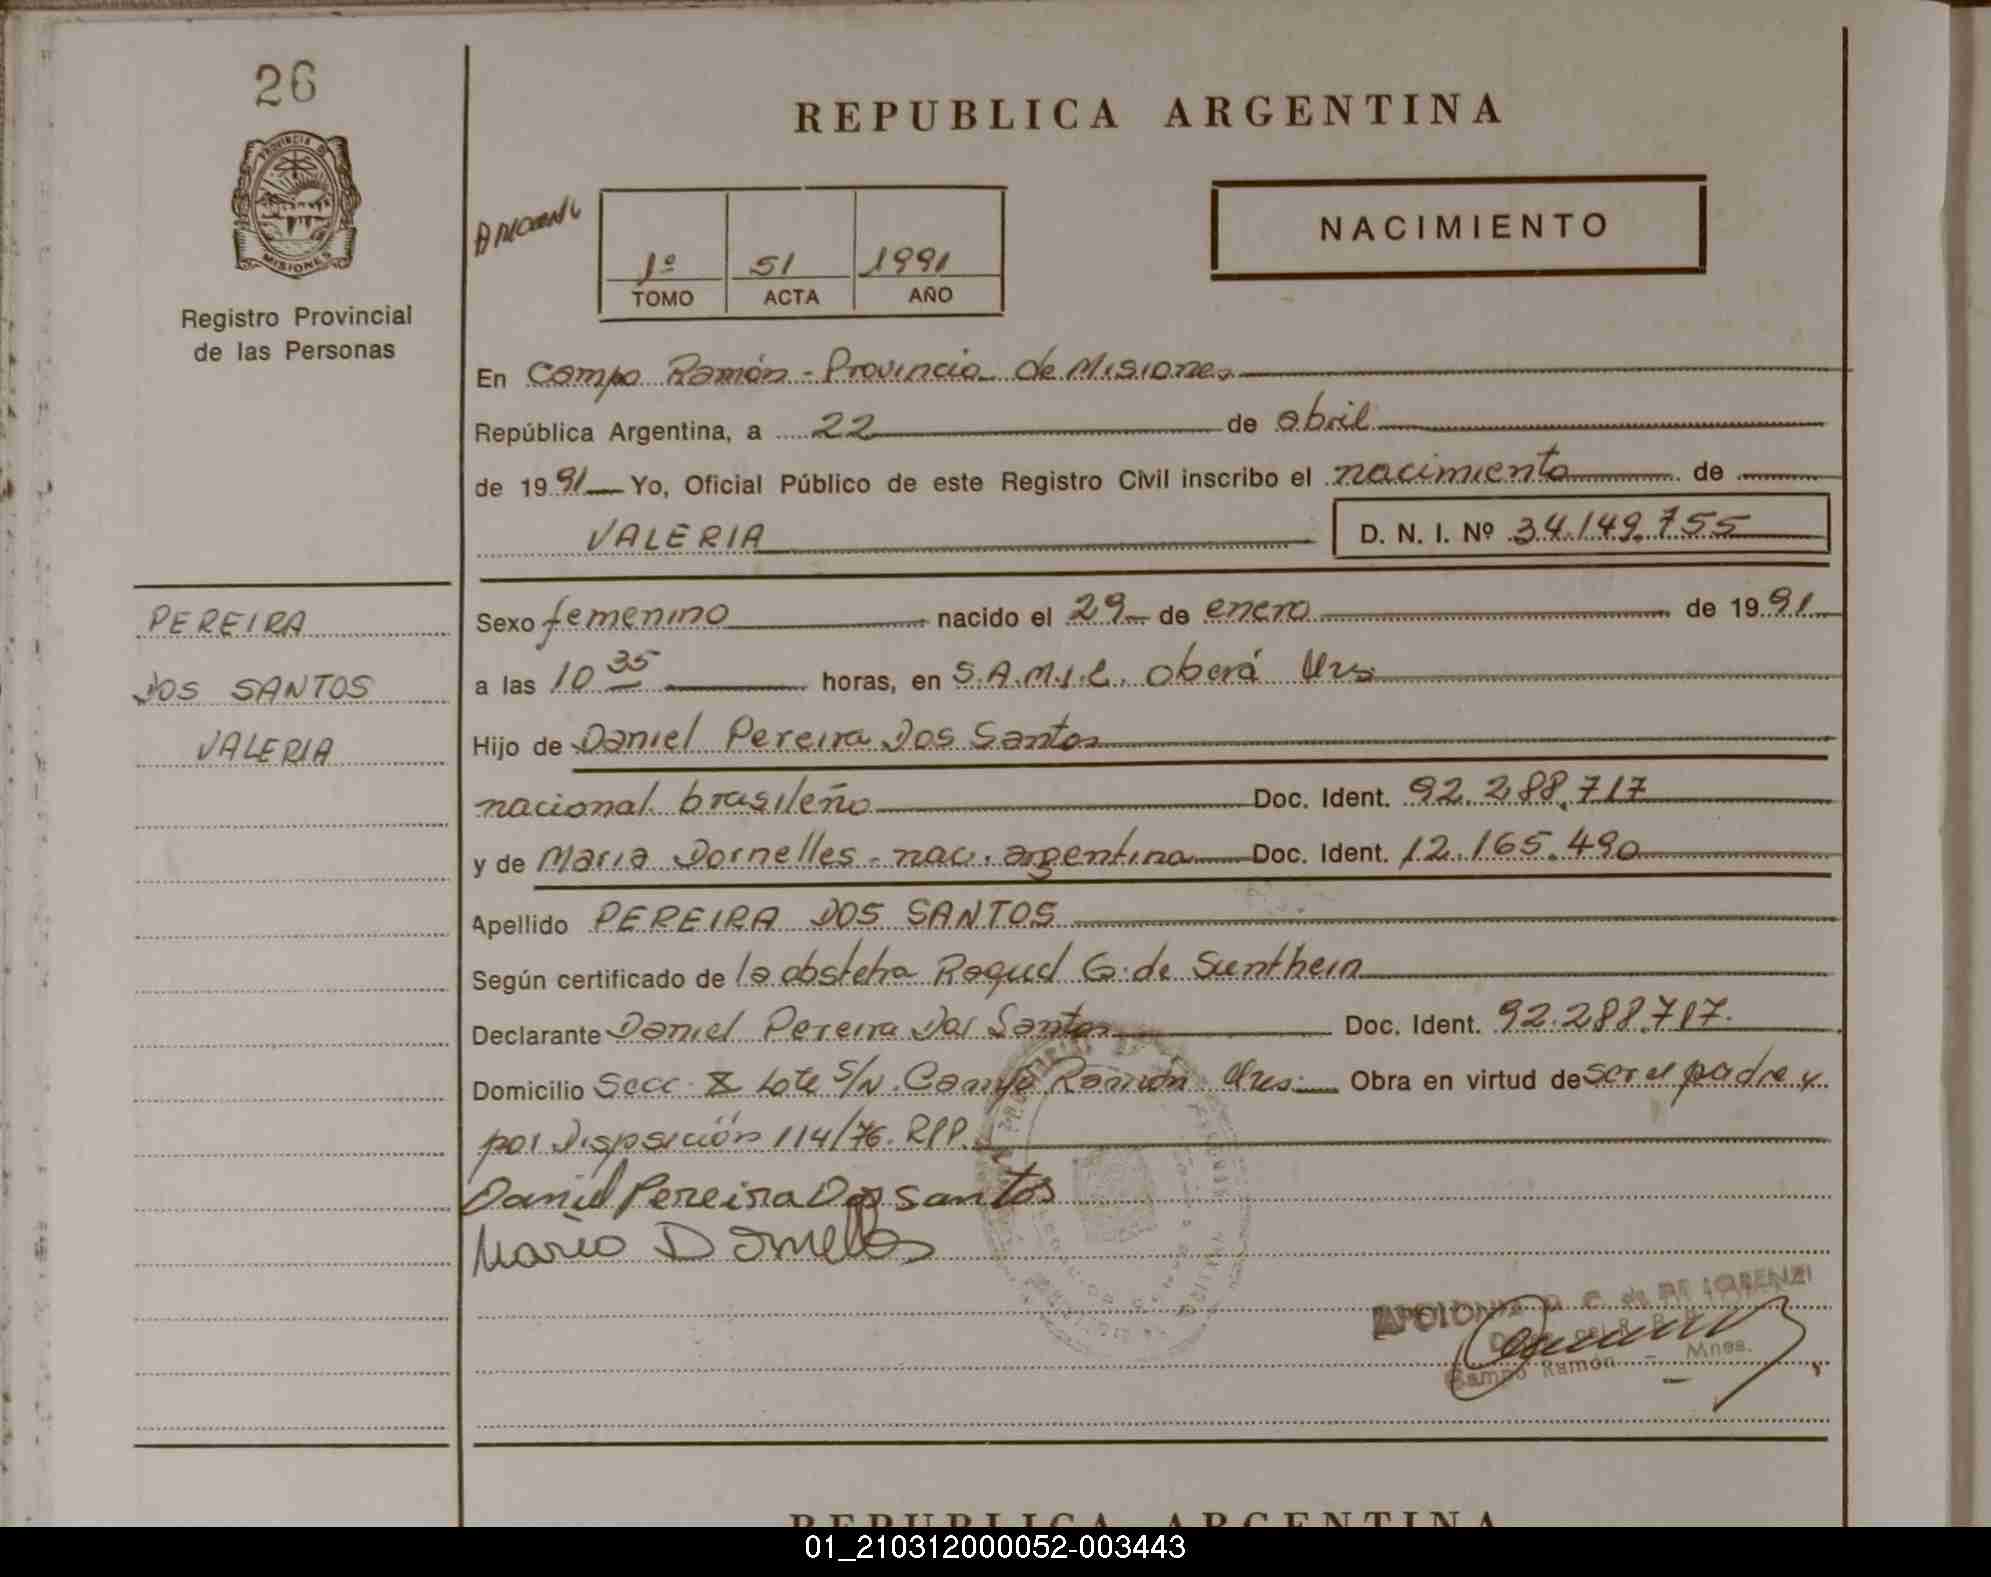 26
REPUBLICA ARGENTINA
PROVINCIA DE
MISIONES
Registro Provincial
de las Personas
NACIMIENTO
1º 51 1991
TOMO ACTA AÑO
En Campo Ramón - Provincia de Misiones
República Argentina, a 22 de abril
de 1991 Yo, Oficial Público de este Registro Civil inscribo el nacimiento de
VALERIA D. N. I. Nº 34.149.755
PEREIRA
DOS SANTOS
VALERIA
Sexo femenino nacido el 29 de enero de 1991
a las 10 35 horas, en S.A.M.I.C. Oberá Mns
Hijo de Daniel Pereira Dos Santos
nacional. brasileño Doc. Ident. 92.288.717
y de Maria Dornelles - nac. argentina Doc. Ident. 12.165.490
Apellido PEREIRA DOS SANTOS
Según certificado de la obstetra Raquel G. de Sunthein
Declarante Daniel Pereira Dos Santos Doc. Ident. 92.288.717.
Domicilio Secc. Lote S/N. Campo Ramón Mns. Obra en virtud de ser el padre y
por Disposición 114/76. RPP.
Daniel Pereira Dos santos
Maria Dornelles
APOLONIA C. de DE LORENZI
Campo Ramón - Mnes.
REPUBLICA ARGENTINA
01_210312000052-003443